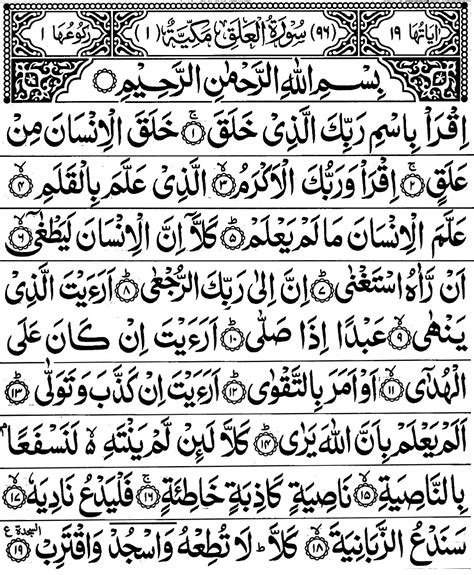 اٰيَاتُهَا ١٩ (٩٦) سُوْرَةُ الْعَلَقِ مَكِّيَّةٌ (١) رُكُوْعُهَا ١
بِسْمِ اللهِ الرَّحْمٰنِ الرَّحِيْمِ
اِقْرَاْ بِاسْمِ رَبِّكَ الَّذِيْ خَلَقَ ۚ﴿١﴾ خَلَقَ الْاِنْسَانَ مِنْ
عَلَقٍ ۚ﴿٢﴾ اِقْرَاْ وَرَبُّكَ الْاَكْرَمُ ۙ﴿٣﴾ الَّذِيْ عَلَّمَ بِالْقَلَمِ ۙ﴿٤﴾
عَلَّمَ الْاِنْسَانَ مَا لَمْ يَعْلَمْ ؕ﴿٥﴾ كَلَّاۤ اِنَّ الْاِنْسَانَ لَيَطْغٰۤى ۙ﴿٦﴾
اَنْ رَّاٰهُ اسْتَغْنٰى ؕ﴿٧﴾ اِنَّ اِلٰى رَبِّكَ الرُّجْعٰى ؕ﴿٨﴾ اَرَءَيْتَ الَّذِيْ
يَنْهٰى ۙ﴿٩﴾ عَبْدًا اِذَا صَلّٰى ؕ﴿١٠﴾ اَرَءَيْتَ اِنْ كَانَ عَلَى
الْهُدٰۤى ۙ﴿١١﴾ اَوْ اَمَرَ بِالتَّقْوٰى ؕ﴿١٢﴾ اَرَءَيْتَ اِنْ كَذَّبَ وَتَوَلّٰى ؕ﴿١٣﴾
اَلَمْ يَعْلَمْ بِاَنَّ اللهَ يَرٰى ؕ﴿١٤﴾ كَلَّا لَئِنْ لَّمْ يَنْتَهِ ۙ۬ لَنَسْفَعًۢا
بِالنَّاصِيَةِ ۙ﴿١٥﴾ نَاصِيَةٍ كَاذِبَةٍ خَاطِئَةٍ ۚ﴿١٦﴾ فَلْيَدْعُ نَادِيَهٗ ۙ﴿١٧﴾
سَنَدْعُ الزَّبَانِيَةَ ۙ﴿١٨﴾ كَلَّا ؕ لَا تُطِعْهُ وَاسْجُدْ وَاقْتَرِبْ ﴿١٩﴾ السجدة ع